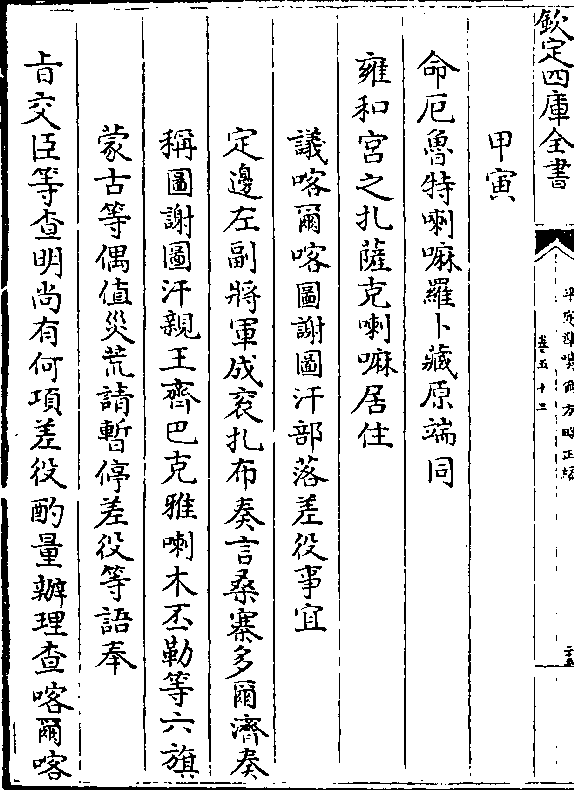 欽定四庫全書
平定準噶爾方略正編
卷五十三
甲寅
命厄魯特喇嘛羅卜藏原端同
雍和宮之扎薩克喇嘛居住
議喀爾喀圖謝圖汗部落差役事宜
定邊左副將軍成衮扎布奏言桑寨多爾濟奏
稱圖謝圖汗親王齊巴克雅喇木丕勒等六旗
蒙古等偶值災荒請暫停差役等語奉
㫖交臣等查明尚有何項差役酌量辦理查喀爾喀